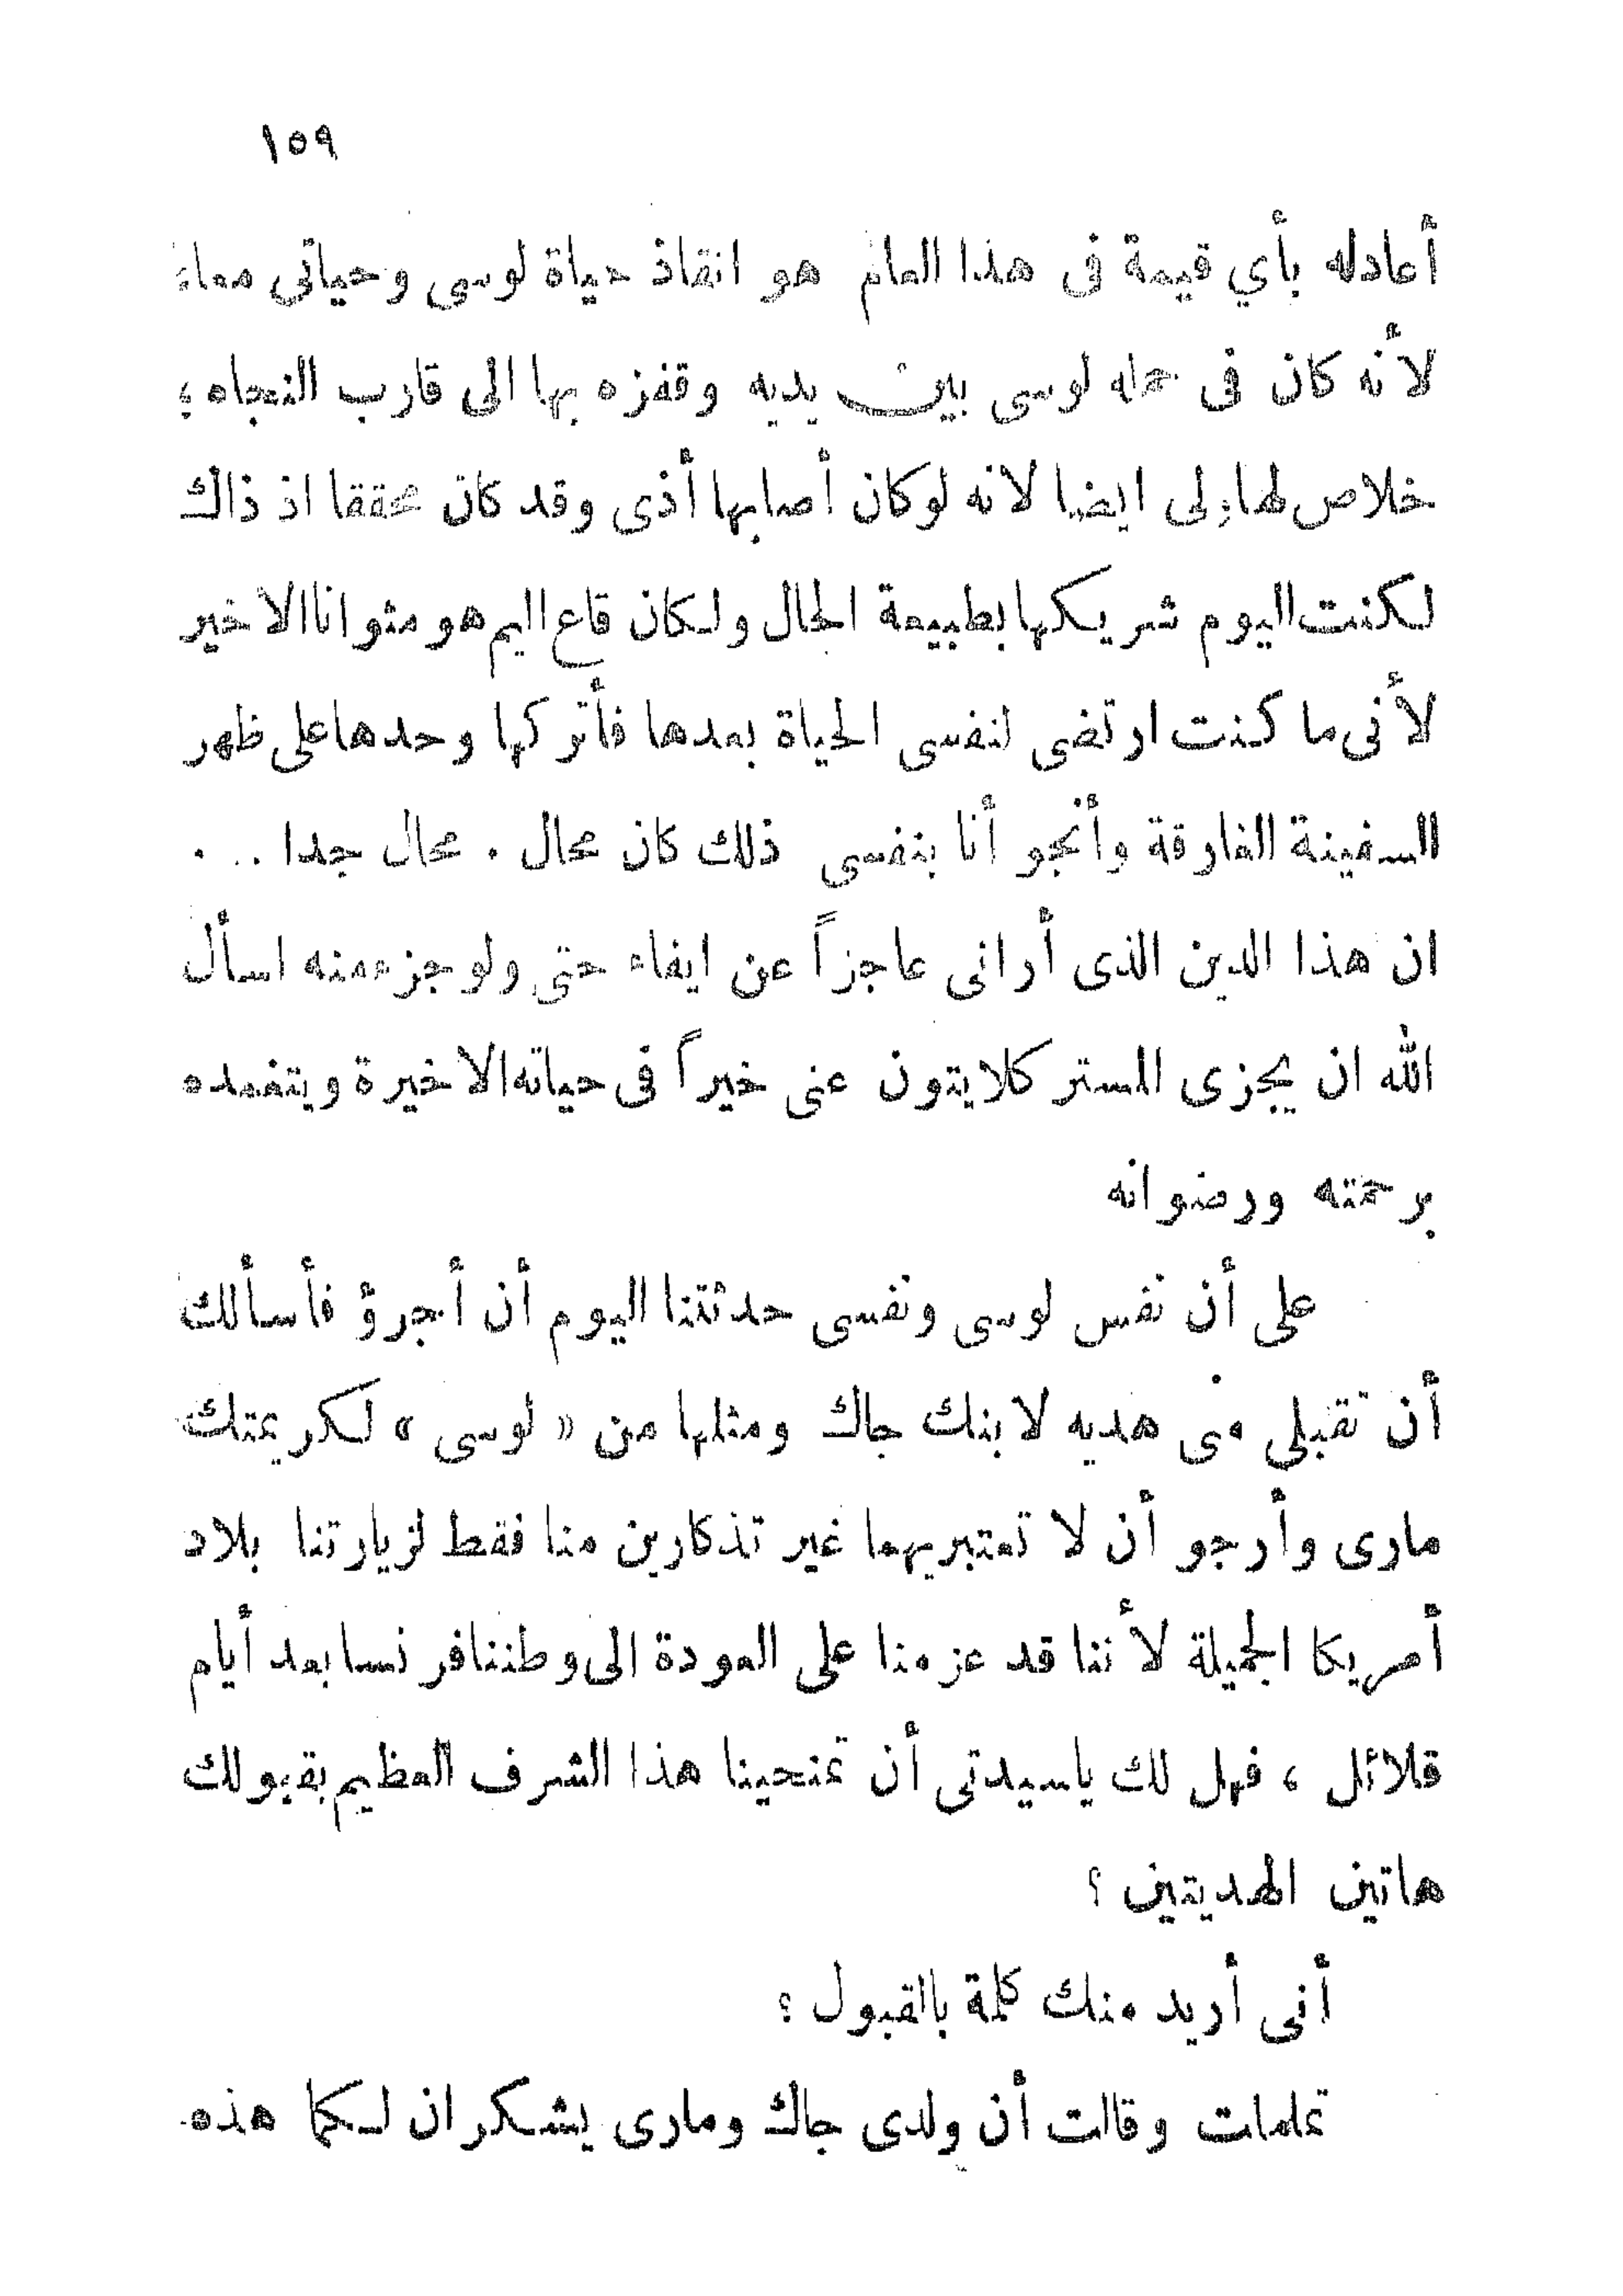 ١٥٩
أعادله بأي قيمة فى هذا العام هو انقاذ حياة لوسى وحياتى معا،
لأنه كان فى حمله لوسى بين يديه وقفزه بها الى قارب النجاه ؛
خلاص لها ولى ايضا لانه لو كان أصابها أذى وقد كان محققا اذ ذاك
لكنت اليوم شريكها بطبيعة الحال ولكان قاع اليم هو مثوانا الاخير
لأنى ما كنت ارتضى لنفسى الحياة بعدها فأتركها وحدها على ظهر
السفينة الغارقة وأنجو أنا بنفسى ذلك كان محال . محال جدا . . .
ان هذا الدين الذى أرانى عاجزاً عن ايفاء حتى ولو جزء منه اسأل
الله ان يجزى المستر كلايتون عنى خيراً فى حياته الاخيرة ويتغمده
برحمته ورضوانه
على أن نفس لوسى ونفسى حدثتنا اليوم أن أجرؤ فأسألك
أن تقبلي منى هديه لابنك جاك ومثلها من « لوسى » لكريمتك
مارى وأرجو أن لا تعتبريهما غير تذكارين منا فقط لزيارتنا بلاد
أمريكا الجميلة لأننا قد عزمنا على العودة الى وطننا فرنسا بعد أيام
قلائل ، فهل لك ياسيدتى أن تمنحينا هذا الشرف العظيم بقبولك
هاتين الهديتين ؟
أنى أريد منك كلمة بالقبول ؟
تململت وقالت أن ولدى جاك ومارى يشكران لكما هذه